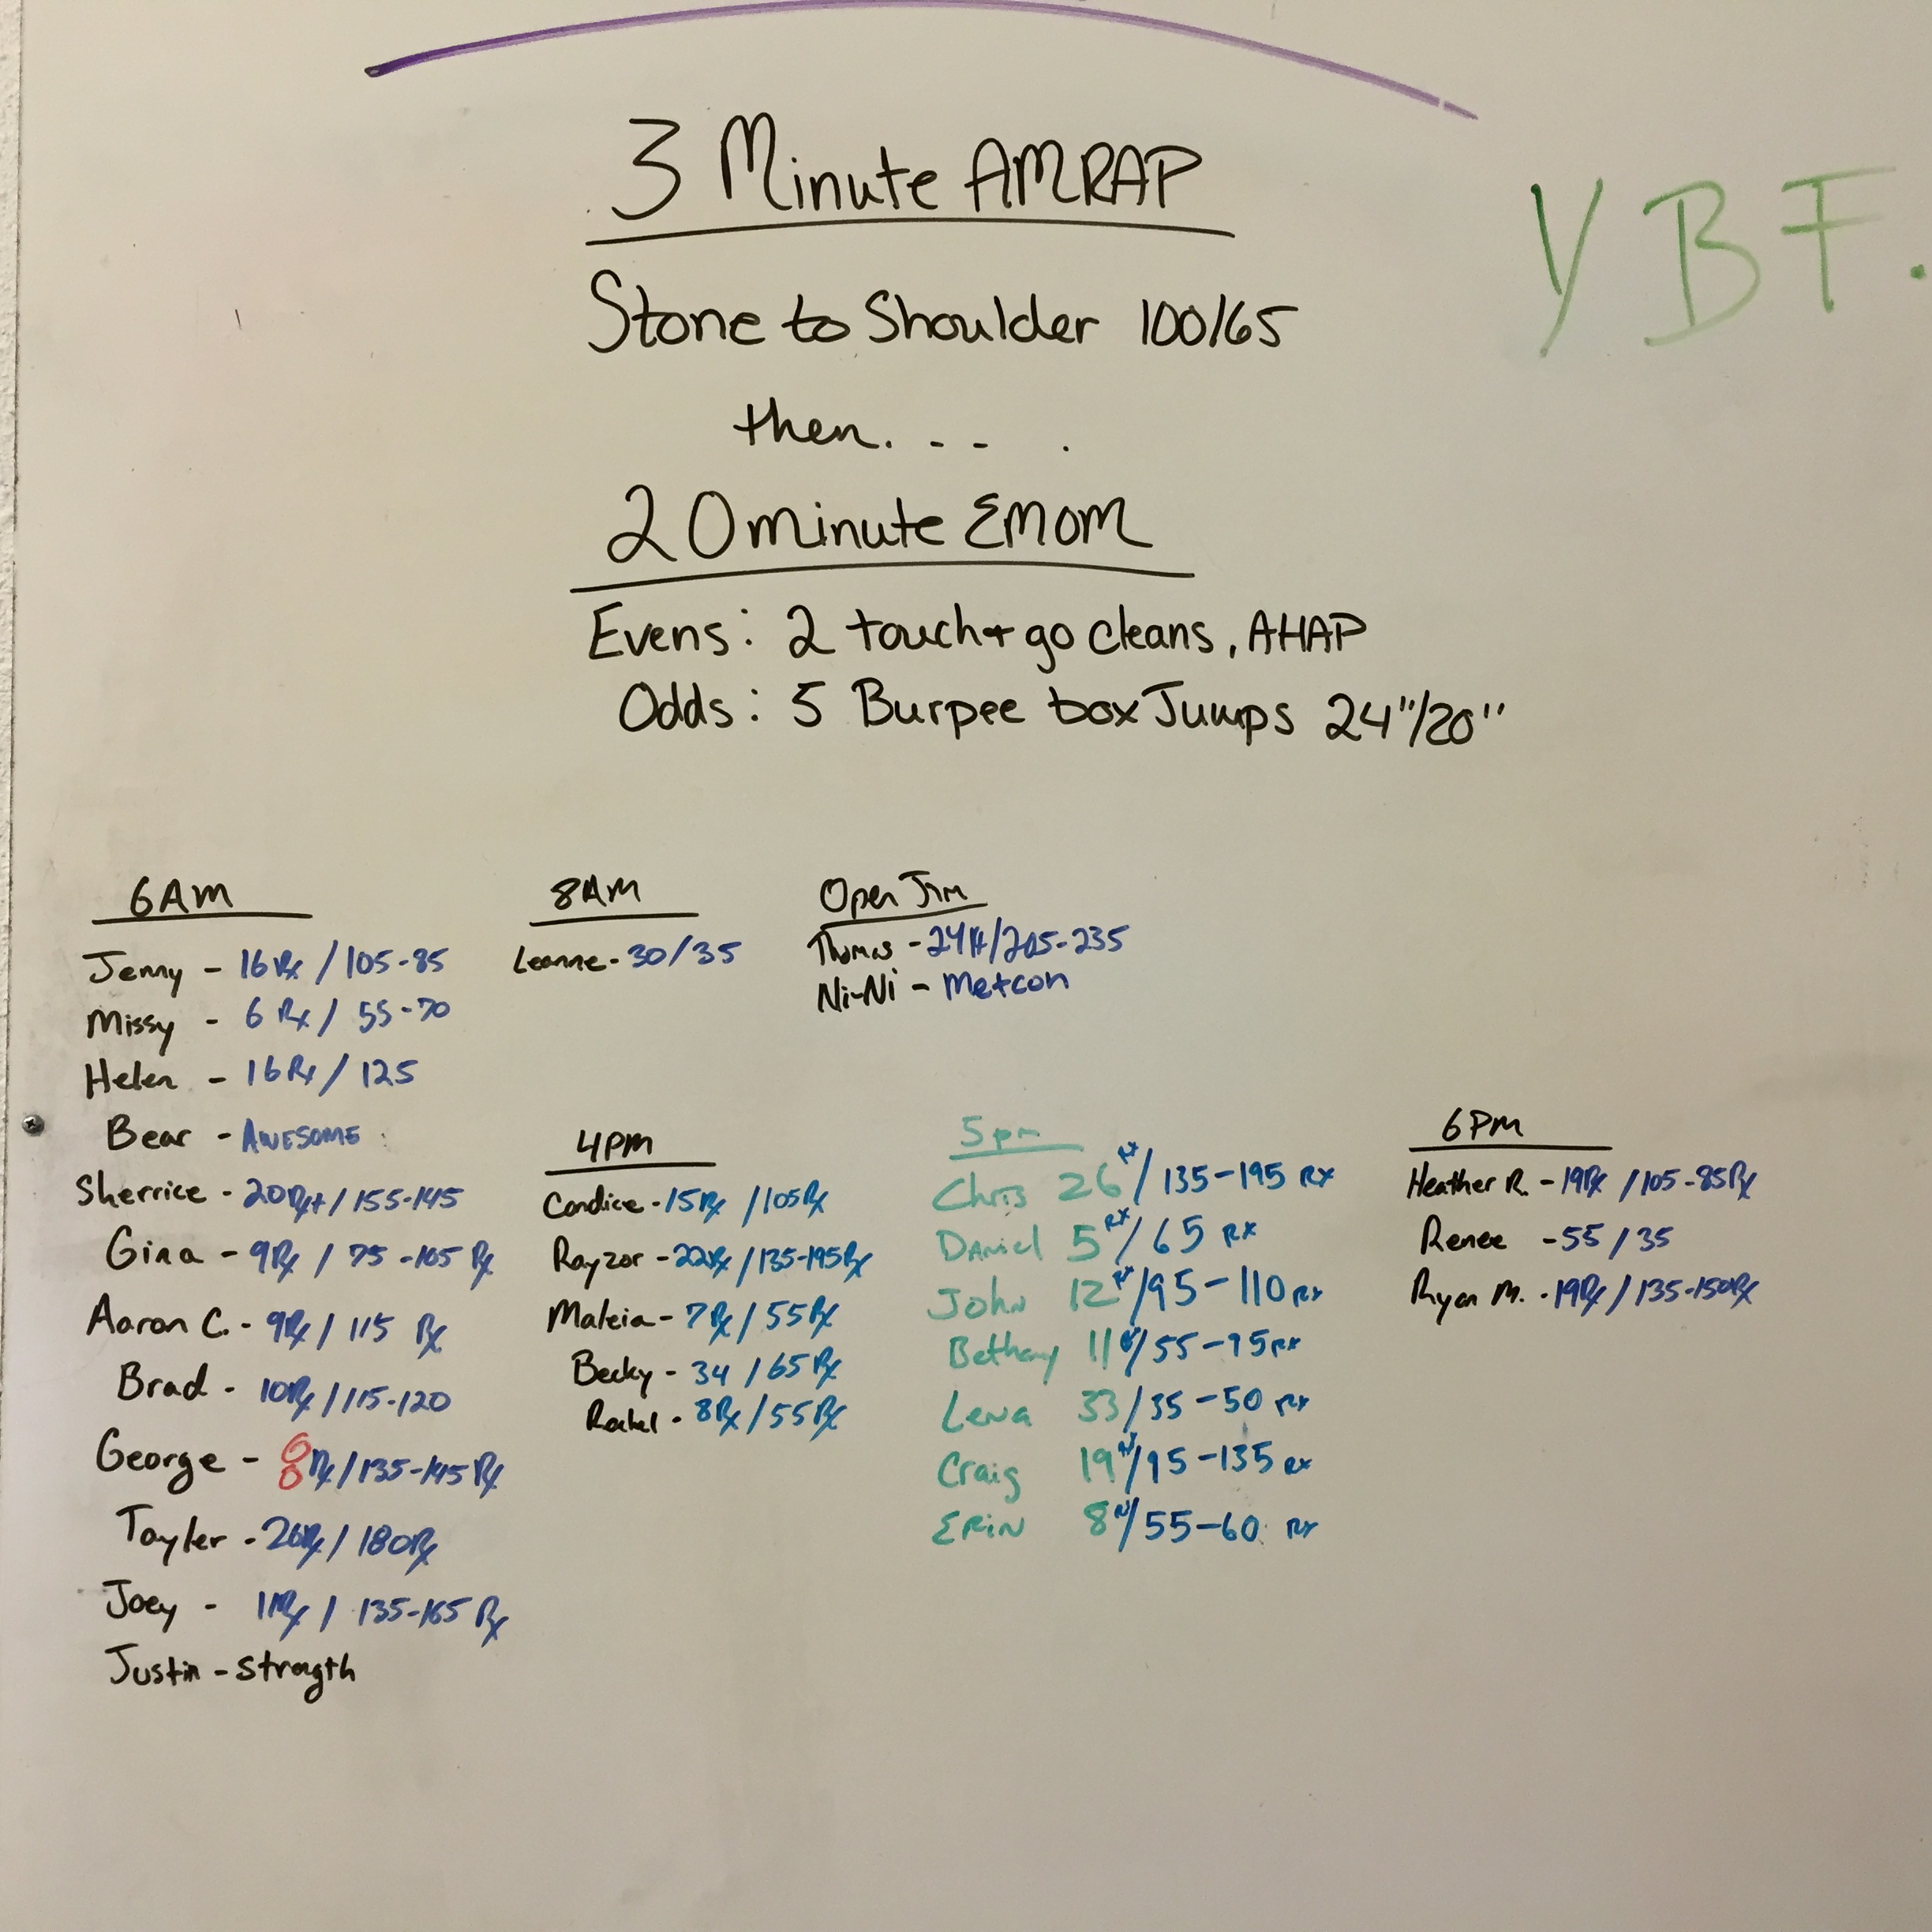 3 Minute AMRAP
Y B F.
Stone to Shoulder 100/65
then. - - .
20 minute EMOM
Evens: 2 touch + go cleans, AHAP
Odds: 5 Burpee box Jumps 24"/20"
6AM
Jenny - 16 Rx / 105-85
Missy - 6 Rx / 55-70
Helen - 16 Rx / 125
Bear - AWESOME
Sherrice - 20Rx+ / 155-145
Gina - 9Rx / 75-105 Rx
Aaron C. - 9Rx / 115 Rx
Brad - 10Rx / 115-120
George - 8Rx / 135-145 Rx
Tayler - 26Rx / 180Rx
Joey - 11Rx / 135-165 Rx
Justin - Strength
8AM
Leanne - 30/35
Open Jim
Thomas - /205-235
Ni-Ni - Metcon
4PM
Candice - 15Rx / 105Rx
Rayzor - 22Rx / 135-195Rx
Maleia - 7Rx / 55Rx
Becky - 34 / 65Rx
Rachel - 8Rx / 55Rx
5pm
Chris 26 Rx / 135-195 Rx
Daniel 5 Rx / 65 Rx
John 12 Rx / 95-110 Rx
Bethany 11 Rx / 55-95 Rx
Lena 33 / 35-50 Rx
Craig 19 Rx / 95-135 Rx
ERIN 8 Rx / 55-60 Rx
6PM
Heather R. - 19Rx / 105-85Rx
Renee - 55 / 35
Ryan M. - 19Rx / 135-150Rx